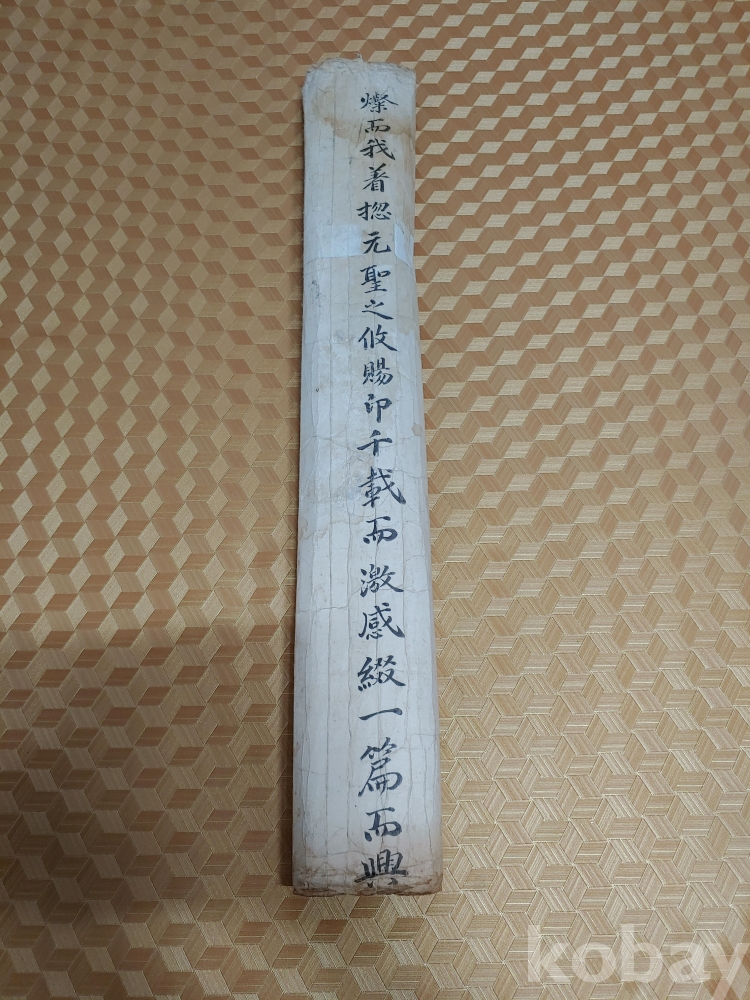 燦而我着揔元聖之攸賜印千載而激感綴一篇而興
kobay